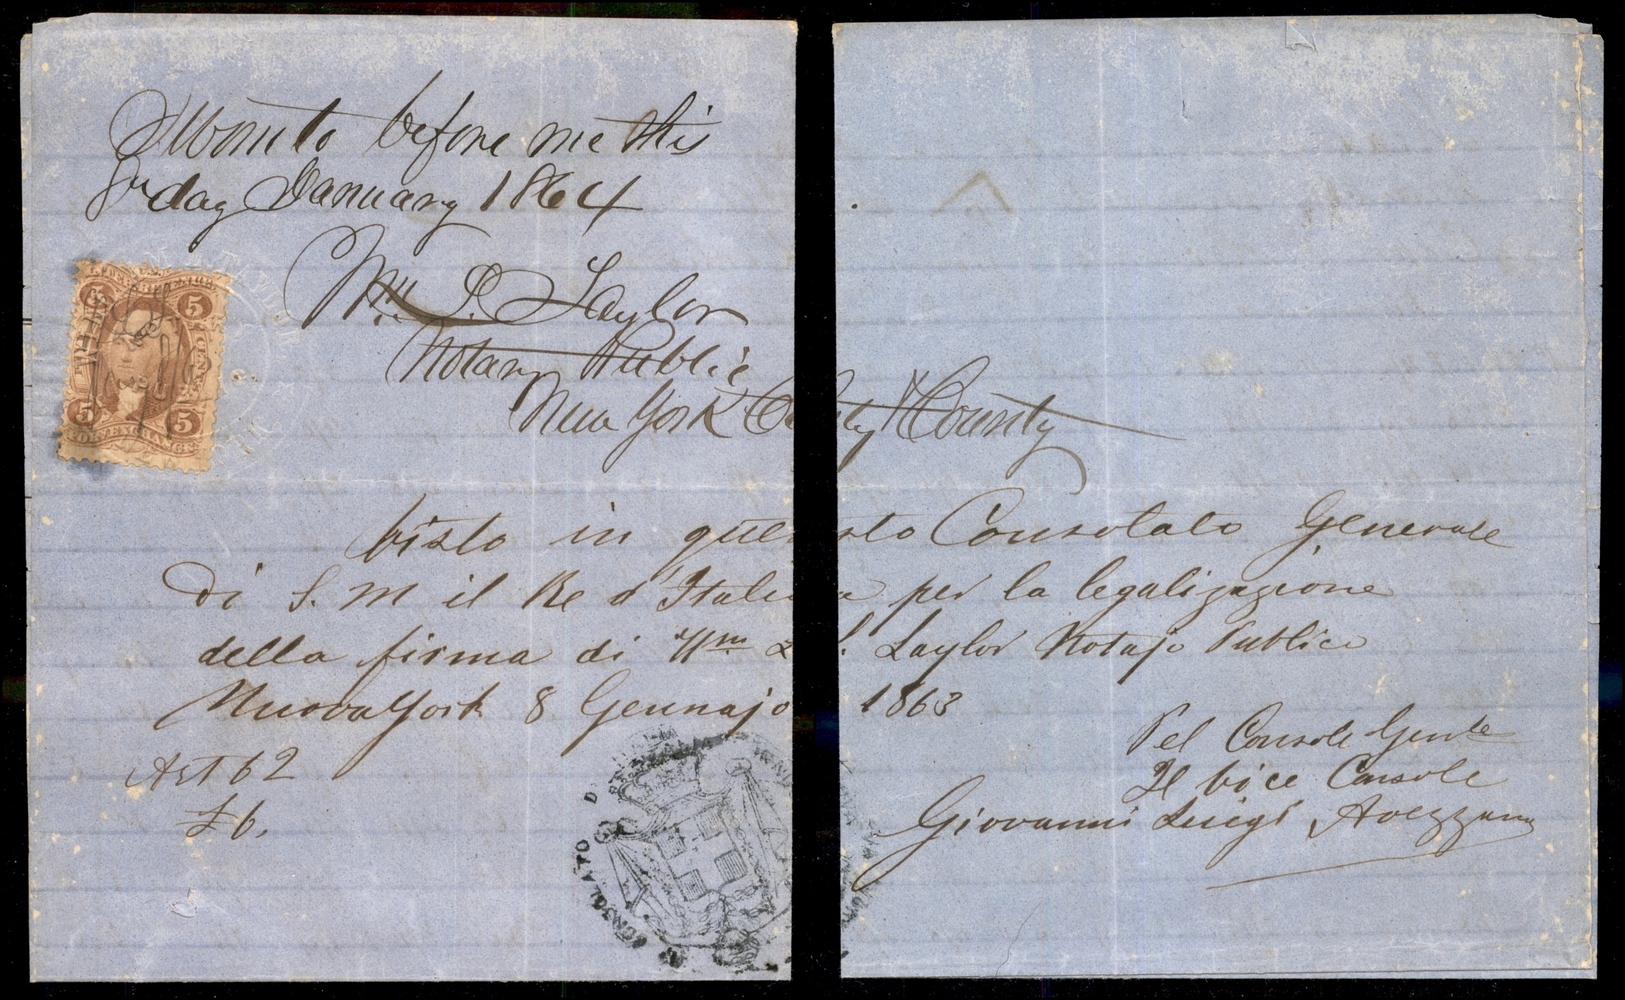 Sworn to before me this
day January 1864
Wm. L. Taylor
Notary Public
New York City & County
5 5
CENTS
5 5
Visto in questo Consolato Generale
di S. M il Re d'Italia per la legalizzazione
della firma di Wm L. Taylor Notajo Publico
Nuova York 8 Gennajo 1863
Art 62
£6.
Pel Console Genle
Il Vice Console
Giovanni Luigi Avezzana
CONSOLATO D